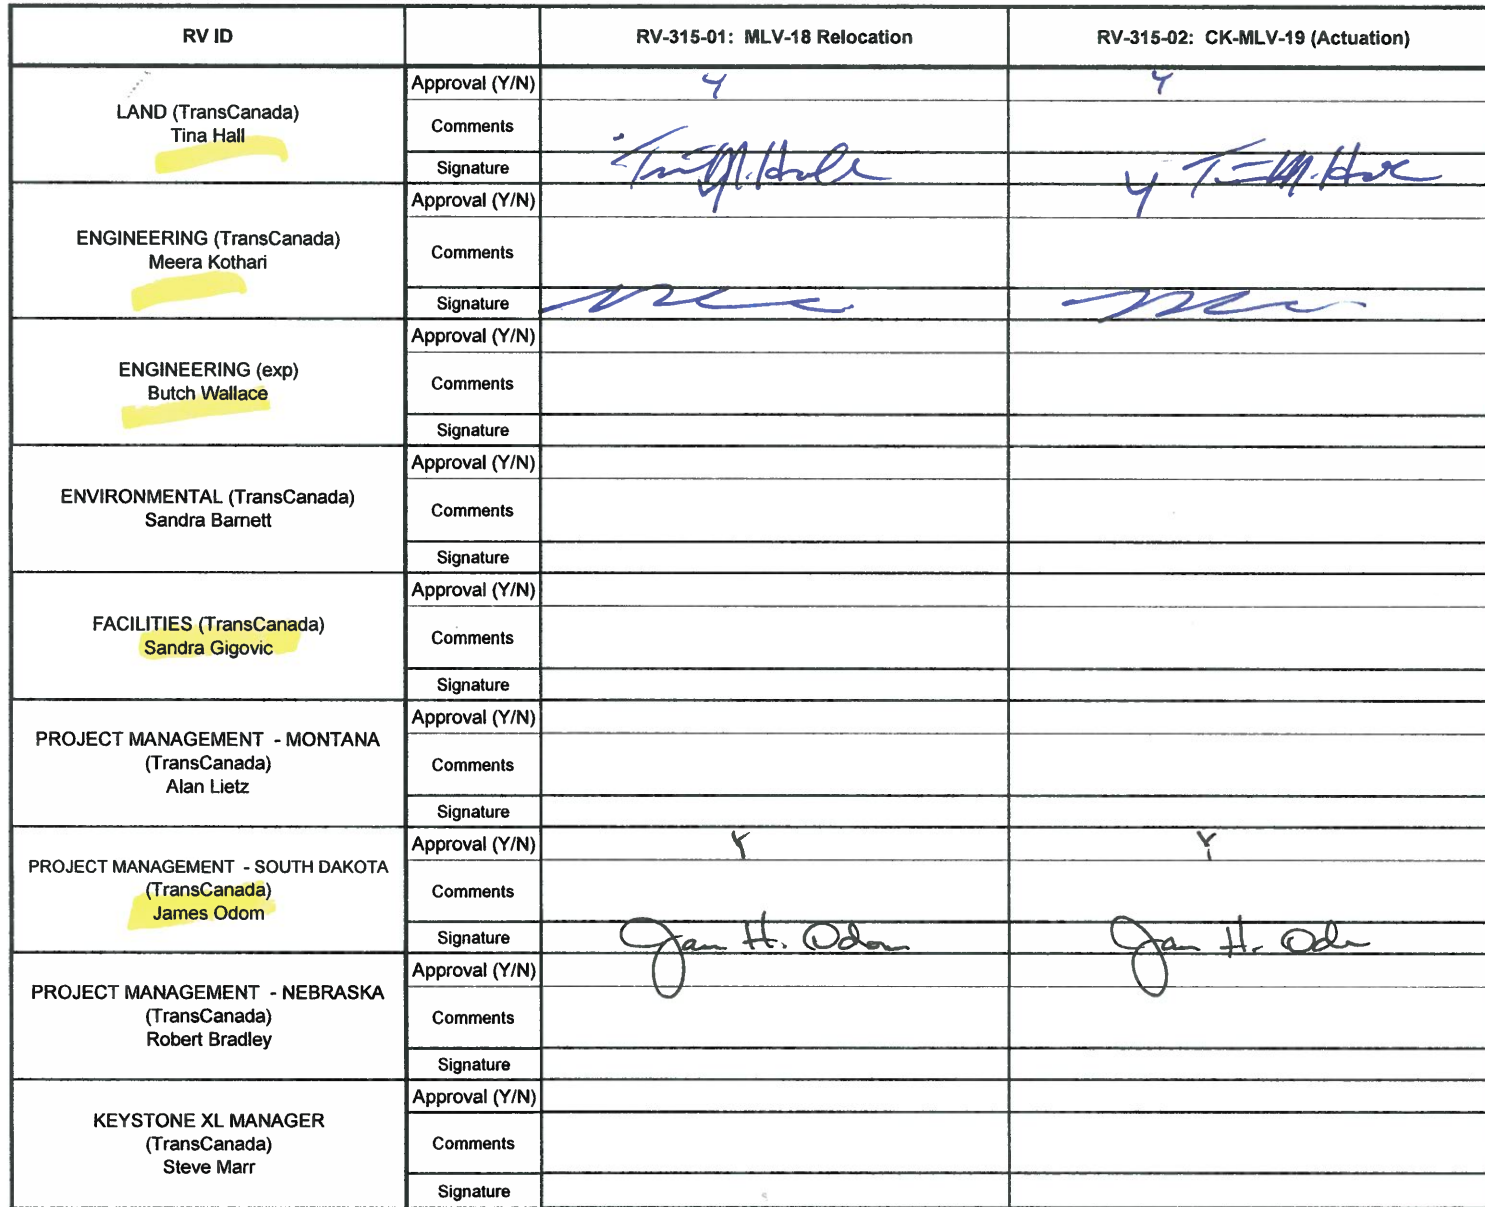 RV ID
RV-315-01: MLV-18 Relocation
RV-315-02: CK-MLV-19 (Actuation)
LAND (TransCanada)
Tina Hall
Approval (Y/N)
Y
Y
Comments
Signature
Tina M. Hall
Tina M. Hall
ENGINEERING (TransCanada)
Meera Kothari
Approval (Y/N)
Y
Y
Comments
Signature
ENGINEERING (exp)
Butch Wallace
Approval (Y/N)
Comments
Signature
ENVIRONMENTAL (TransCanada)
Sandra Barnett
Approval (Y/N)
Comments
Signature
FACILITIES (TransCanada)
Sandra Gigovic
Approval (Y/N)
Comments
Signature
PROJECT MANAGEMENT - MONTANA
(TransCanada)
Alan Lietz
Approval (Y/N)
Comments
Signature
PROJECT MANAGEMENT - SOUTH DAKOTA
(TransCanada)
James Odom
Approval (Y/N)
Y
Y
Comments
Signature
Jam H. Odom
Jam H. Odom
PROJECT MANAGEMENT - NEBRASKA
(TransCanada)
Robert Bradley
Approval (Y/N)
Comments
Signature
KEYSTONE XL MANAGER
(TransCanada)
Steve Marr
Approval (Y/N)
Comments
Signature